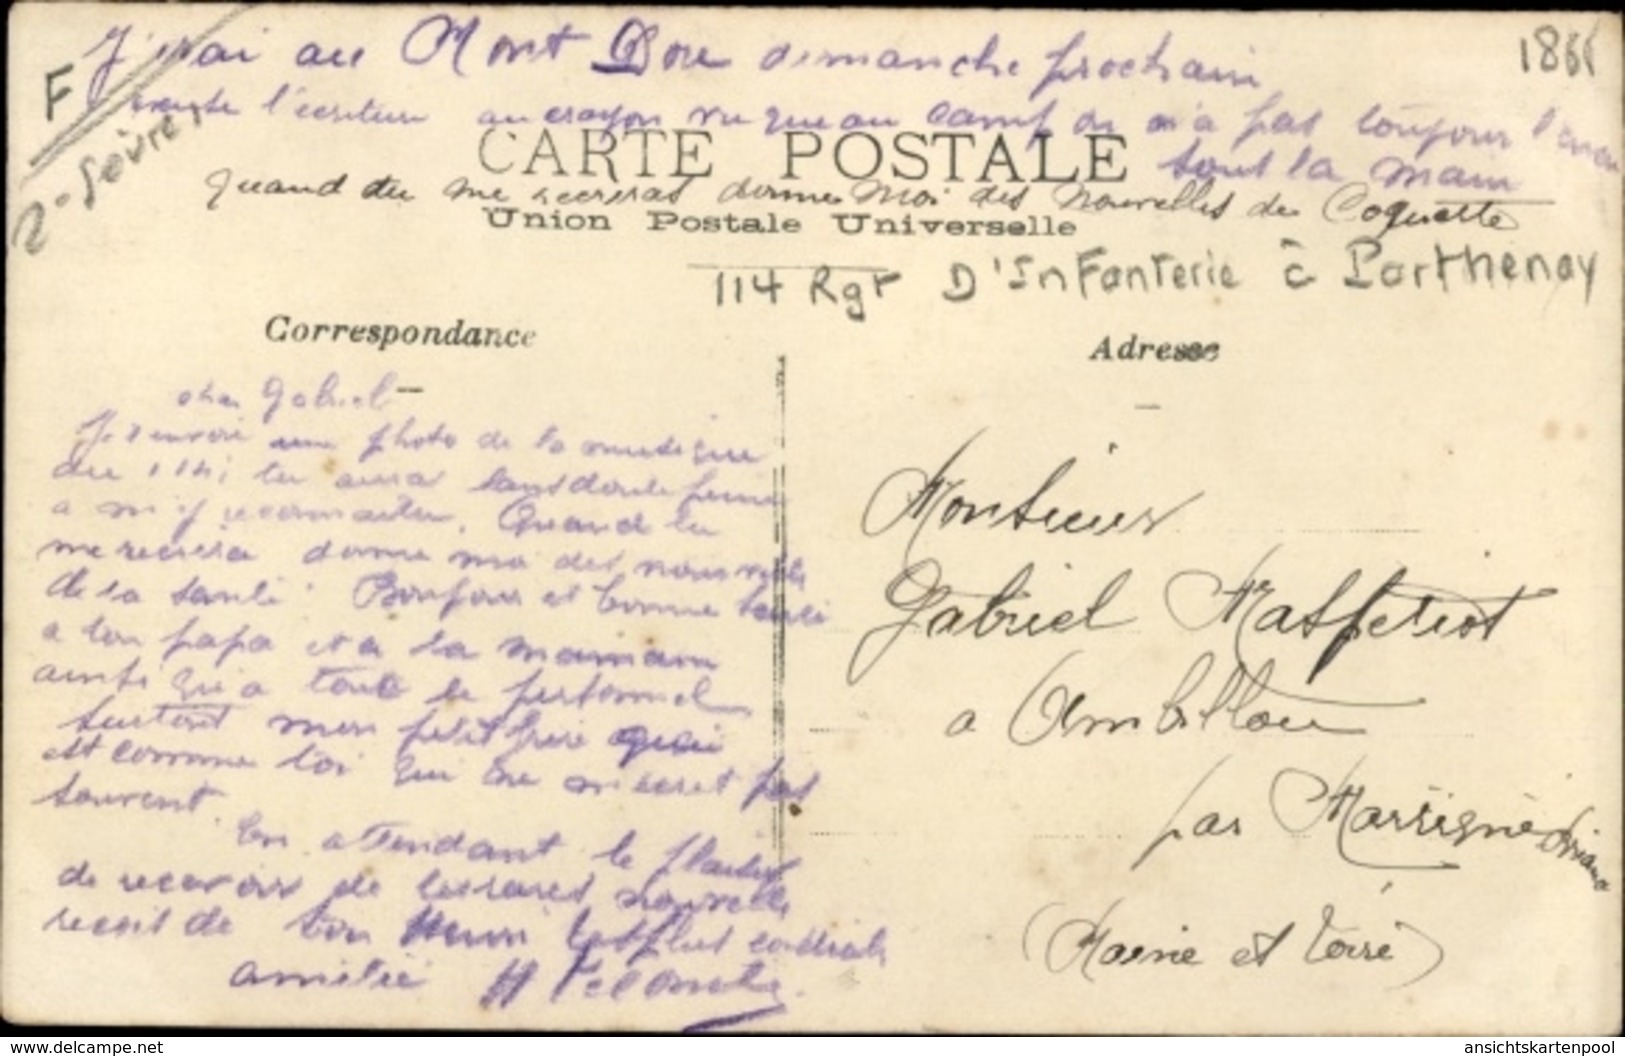 J'irai au Mont Dore dimanche prochain
1866
F
l'ecriture au crayon vu que au camp on n'a pas toujours l'encre
sous la main
2. Sèvre
CARTE POSTALE
Quand tu me recriras donnes moi des nouvelles de Coquette
Union Postale Universelle
114 Rgt D'Infanterie à Parthenay
Correspondance
cher Gabriel
Je t'envoie une photo de la musique
du 114; tu auras sans doute peine
a m'y reconnaitre. Quand tu
me recrira donne moi des nouvelle
de ta santé. Bonjour et bonne santé
a ton papa et a ta maman
ainsi qu'a tout le personnel
surtout mon petit frere quoi
est comme toi qui ne m'ecret pas
souvent.
En attendant le plaisir
de recevoir de tes nouvelle
recoit de ton les plus cordiale
amitié H
Adresse
Monsieur
Gabriel
a Ambillou
par Martigné Briand
(Maine et Loire)
www.delcampe.net
ansichtskartenpool